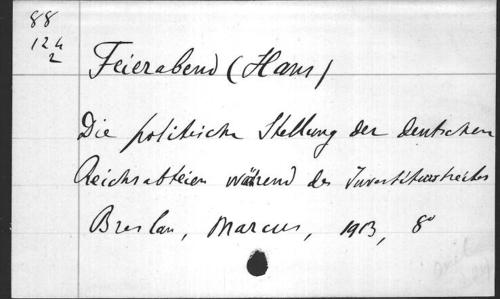 88
124
2
Feierabend (Hans)
Die politische Stellung der deutschen
Reichsabteien während des Investiturstreites
Breslau, Marcus, 1913, 8°